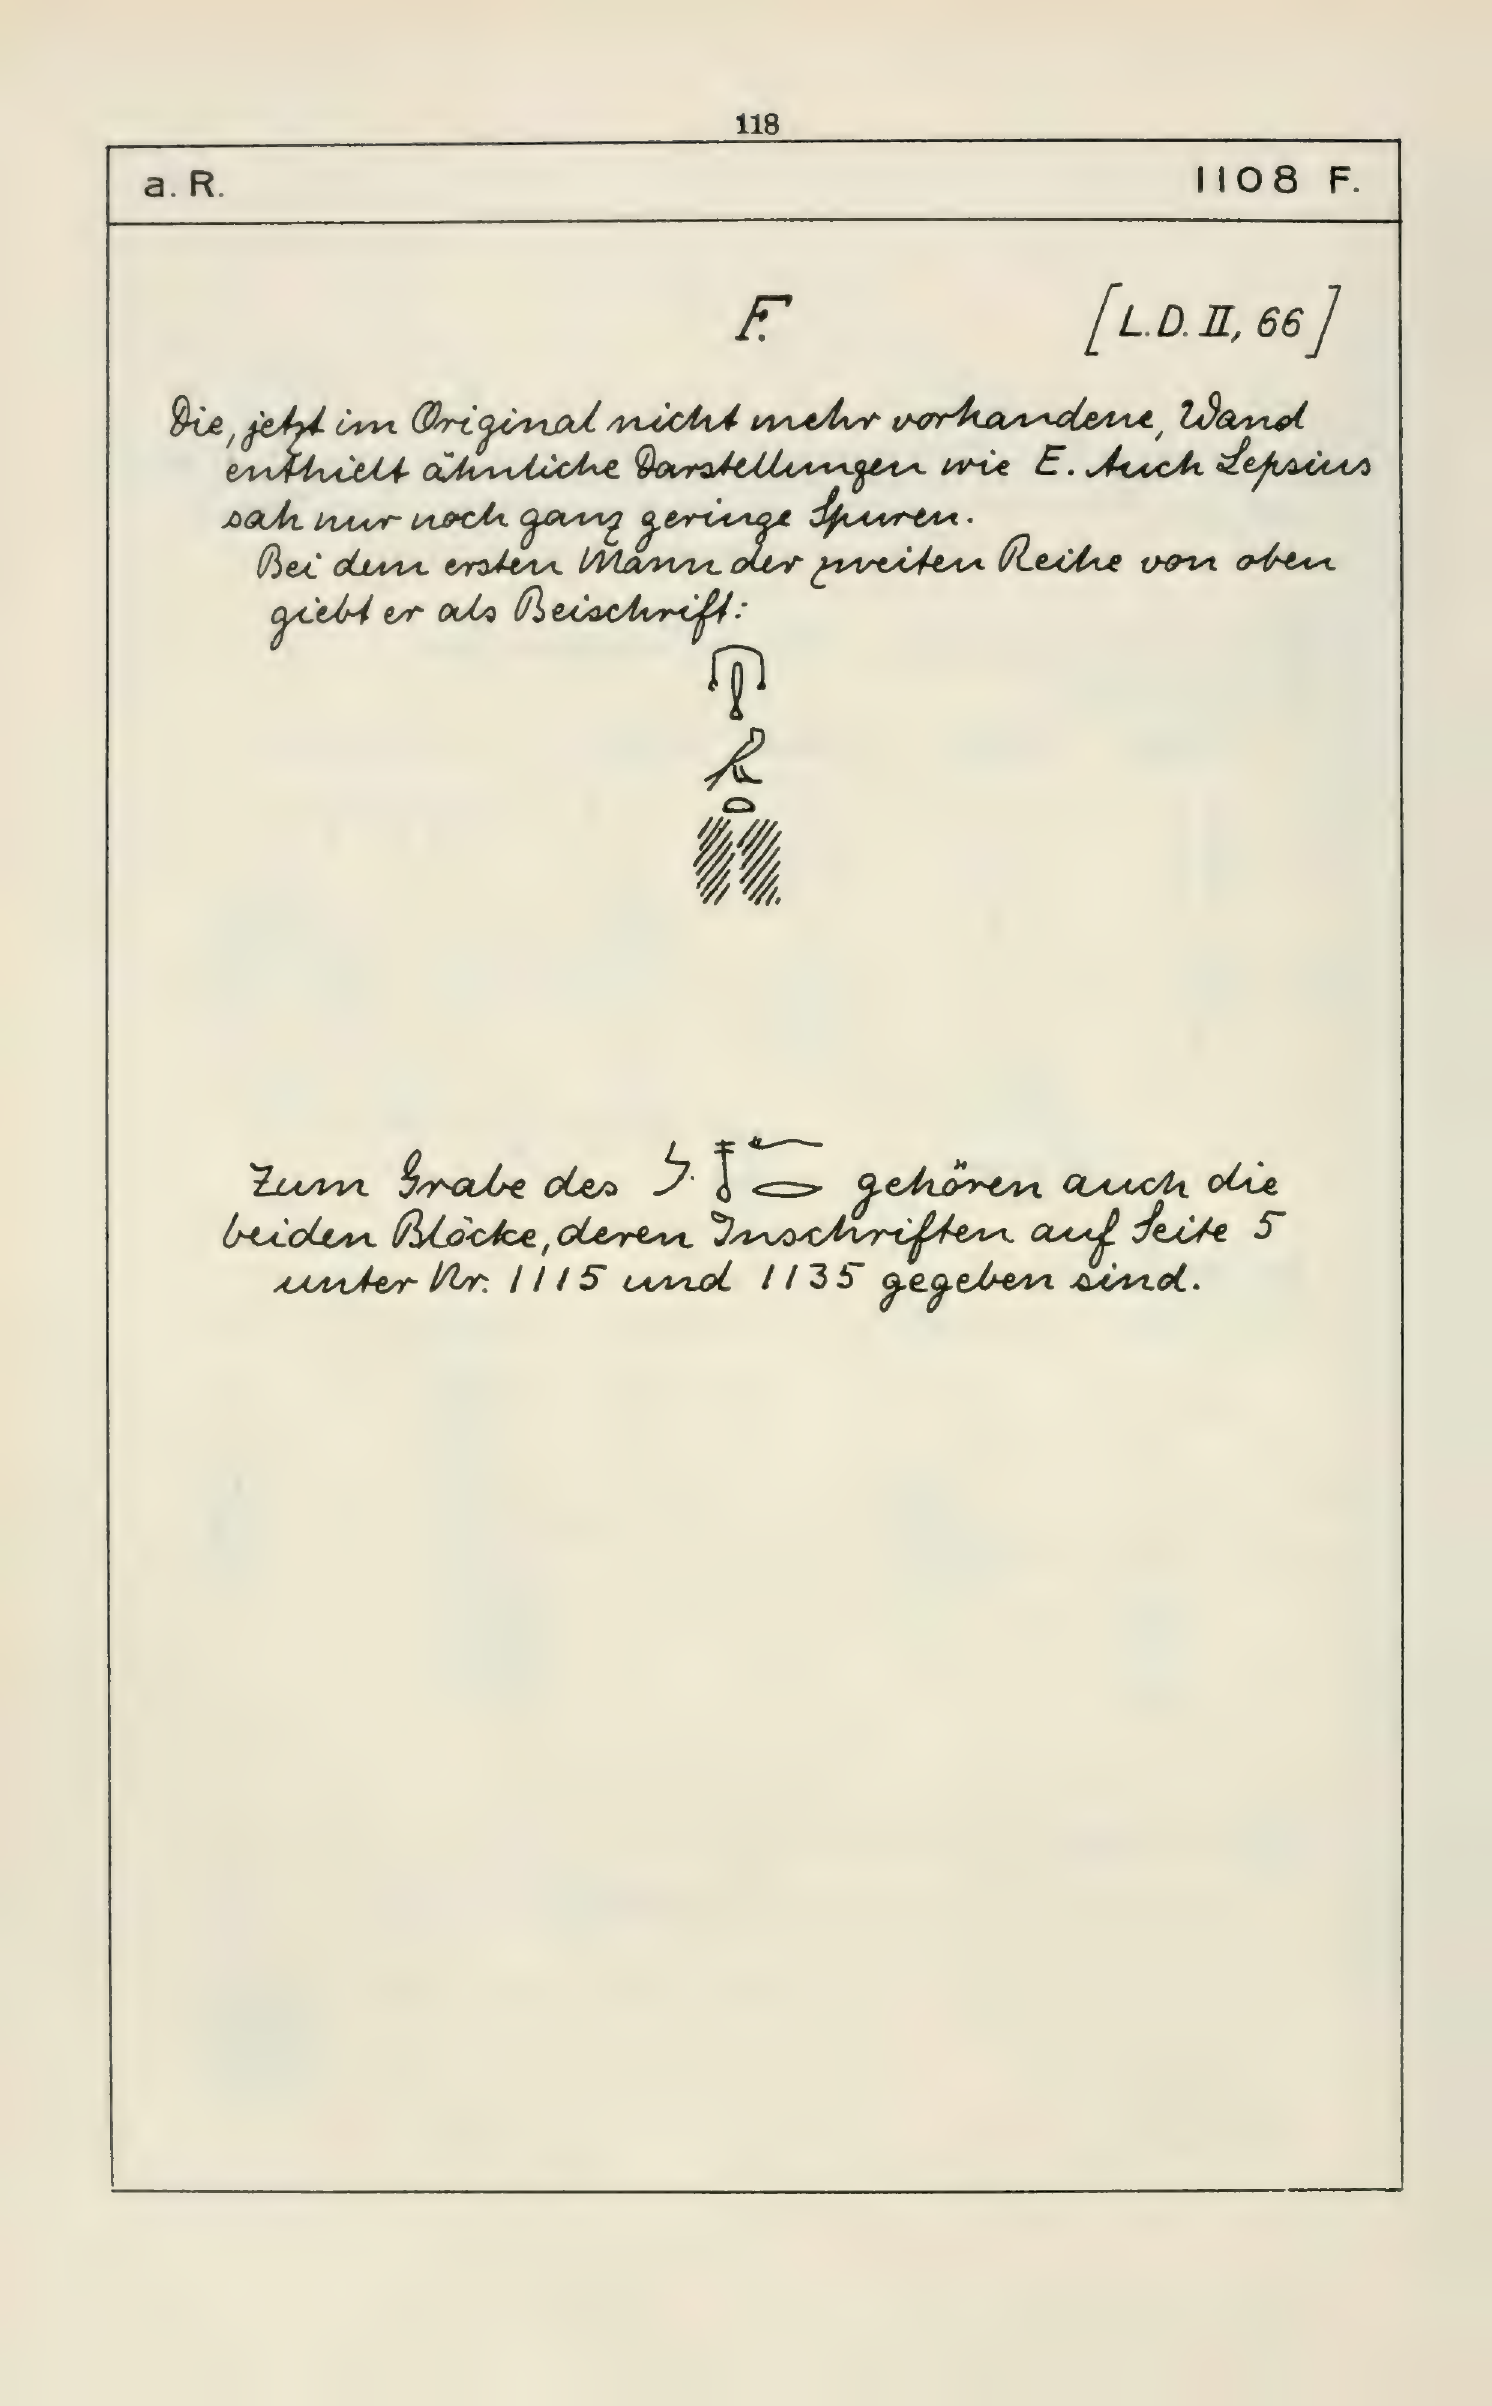 118
a. R.
1108 F.
F.
[L.D. II, 66]
Die, jetzt im Original nicht mehr vorhandene, Wand
enthielt ähnliche Darstellungen wie E. Auch Lepsius
sah nur noch ganz geringe Spuren.
Bei dem ersten Mann der zweiten Reihe von oben
giebt er als Beischrift:
Zum Grabe des gehören auch die
beiden Blöcke, deren Inschriften auf Seite 5
unter Nr. 1115 und 1135 gegeben sind.